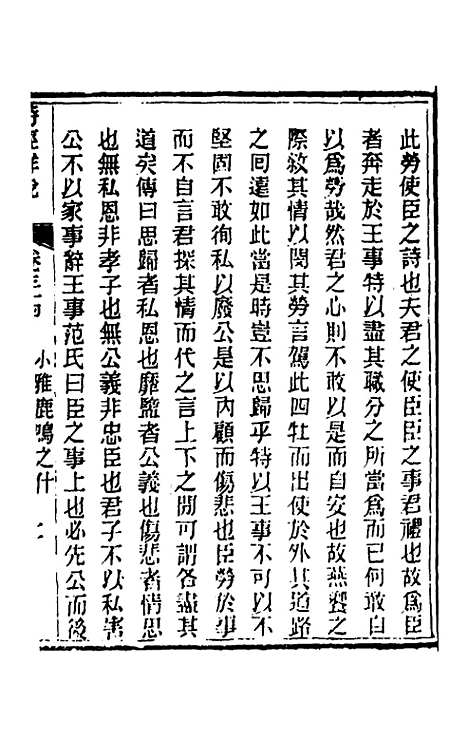 此勞使臣之詩也夫君之使臣臣之事君禮也故爲臣
者奔走於王事特以盡其職分之所當爲而已何敢自
以爲勞哉然君之心則不敢以是而自安也故燕饗之
際敘其情以閔其勞言駕此四牡而出使於外其道路
之回遠如此當是時豈不思歸乎特以王事不可以不
堅固不敢徇私以廢公是以內顧而傷悲也臣勞於事
而不自言君探其情而代之言上下之閒可謂各盡其
道矣傳曰思歸者私恩也靡盬者公義也傷悲者情思
也無私恩非孝子也無公義非忠臣也君子不以私害
公不以家事辭王事范氏曰臣之事上也必先公而後
詩經詳說 小雅鹿鳴之什